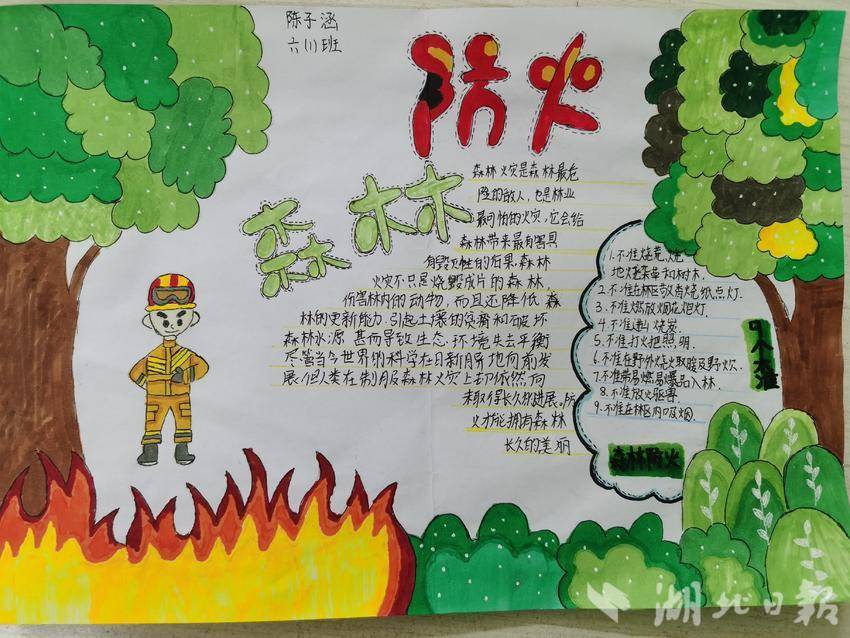 陈子涵
六(1)班
防火
森林
森林火灾是森林最危
险的敌人，也是林业
最可怕的火灾，它会给
森林带来最有害具
有毁灭性的后果森林
火灾不只是烧毁成片的森林，
伤害林内的动物，而且还降低森
林的更新能力，引起土壤的贫瘠和破坏
森林水源，甚而导致生态环境失去平衡
尽管当今世界的科学在日新月异地向前发
展，但人类在制服森林火灾上却依然
未取得长久的进展，防
火才能拥有森林
长久的美丽
1.不准烧荒、烧
地埂杂草和树木.
2.不准在林区敬香烧纸点灯.
3.不准燃放烟花炮灯.
4.不准进山烧炭.
5.不准打火把照明.
6.不准在野外烧火取暖及野炊.
7.不准带易燃易爆品入林.
8.不准放火驱兽.
9.不准在林区内吸烟.
9个不准
森林防火
湖北日报